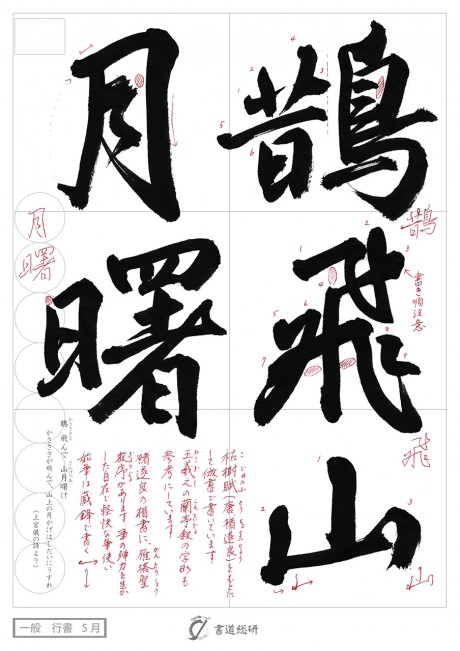 鵲飛山
月曙
鵲
書き順注意
飛
山
月
曙
枯樹賦(唐褚遂良)をもとに
して倣書で書いています
王羲之の蘭亭叙の字形も
参考にしています
褚遂良の楷書に、雁塔聖
教序があります 筆の弾力を生か
した自在で軽快な筆使い
始筆は蔵鋒で書く
鵲飛んで 山月曙け
かささぎが飛んで、山上の月かげはしだいにうすれ
(上官儀の詩より)
一般 行書 5月
書道総研